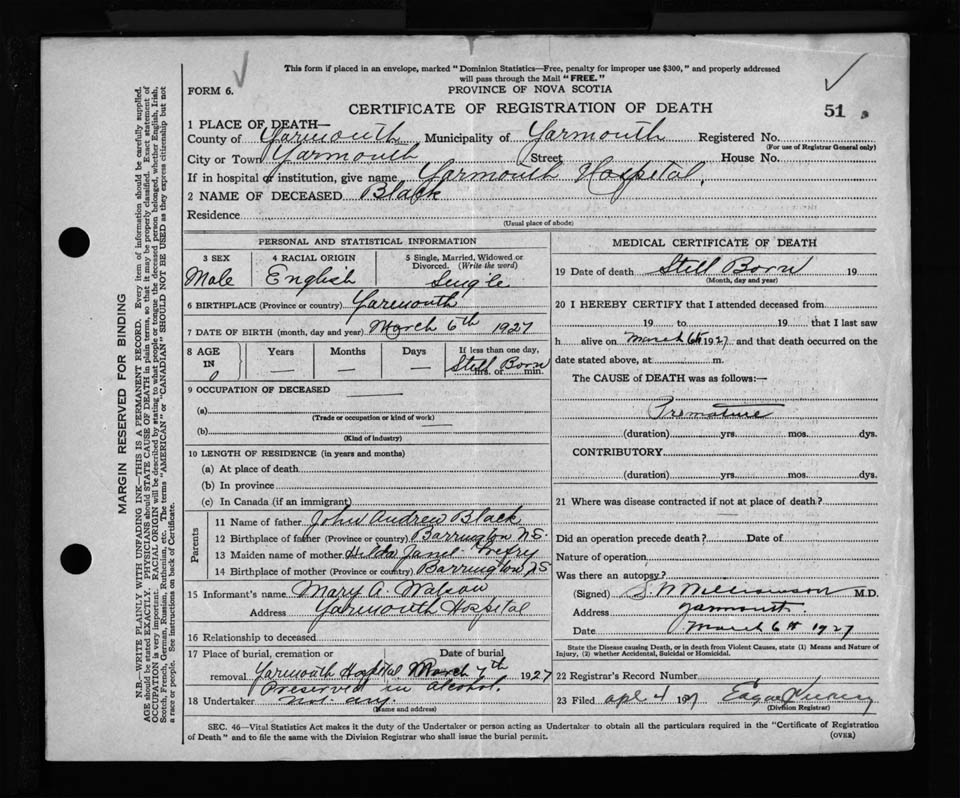 This form if placed in an envelope, marked "Dominion Statistics—Free, penalty for improper use $300," and properly addressed
will pass through the Mail "FREE."
FORM 6.
PROVINCE OF NOVA SCOTIA
CERTIFICATE OF REGISTRATION OF DEATH
51
1 PLACE OF DEATH—
County of Yarmouth Municipality of Yarmouth Registered No.
(For use of Registrar General only)
City or Town Yarmouth Street House No.
If in hospital or institution, give name Yarmouth Hospital.
2 NAME OF DECEASED Black
Residence
(Usual place of abode)
PERSONAL AND STATISTICAL INFORMATION
3 SEX 4 RACIAL ORIGIN 5 Single, Married, Widowed or
Divorced. (Write the word)
Male English Single
6 BIRTHPLACE (Province or country) Yarmouth
7 DATE OF BIRTH (month, day and year) March 6th 1927
8 AGE Years Months Days If less than one day,
IN
0 — — — Still Born
hrs. or min.
9 OCCUPATION OF DECEASED
(a)
(Trade or occupation or kind of work)
(b)
(Kind of industry)
10 LENGTH OF RESIDENCE (in years and months)
(a) At place of death
(b) In province
(c) In Canada (if an immigrant)
Parents
11 Name of father John Andrew Black
12 Birthplace of father (Province or country) Barrington N.S.
13 Maiden name of mother Hilda Janel
14 Birthplace of mother (Province or country) Barrington N.S
15 Informant's name Mary A. Watson
Address Yarmouth Hospital
16 Relationship to deceased
17 Place of burial, cremation or Date of burial
removal Yarmouth Hospital March 7th 1927
Preserved in alcohol.
18 Undertaker not any.
(Name and address)
MEDICAL CERTIFICATE OF DEATH
19 Date of death Still Born 19
(Month, day and year)
20 I HEREBY CERTIFY that I attended deceased from
19 to 19 that I last saw
h alive on March 6th 1927 and that death occurred on the
date stated above, at m.
The CAUSE of DEATH was as follows:—
Premature
(duration) yrs. mos. dys.
CONTRIBUTORY
(duration) yrs. mos. dys.
21 Where was disease contracted if not at place of death?
Did an operation precede death? Date of
Nature of operation
Was there an autopsy?
(Signed) Williamson M.D.
Address Yarmouth.
Date March 6th 1927
State the Disease causing Death, or in death from Violent Causes, state (1) Means and Nature of
Injury, (2) whether Accidental, Suicidal or Homicidal.
22 Registrar's Record Number
23 Filed apl 4 Edgar
(Division Registrar)
SEC. 46—Vital Statistics Act makes it the duty of the Undertaker or person acting as Undertaker to obtain all the particulars required in the "Certificate of Registration
of Death" and to file the same with the Division Registrar who shall issue the burial permit.
(OVER)
MARGIN RESERVED FOR BINDING
N.B.—WRITE PLAINLY WITH UNFADING INK—THIS IS A PERMANENT RECORD. Every item of information should be carefully supplied.
AGE should be stated EXACTLY. PHYSICIANS should STATE CAUSE OF DEATH in plain terms, so that it may be properly classified. Exact statement of
OCCUPATION is very important. RACIAL ORIGIN will be described by stating to what people or tongue the deceased person belonged, whether English, Irish,
Scotch, French, German, Russian, Ruthenian, etc. The terms "AMERICAN" or "CANADIAN" SHOULD NOT BE USED as they express citizenship but not
a race or people. See instructions on back of Certificate.